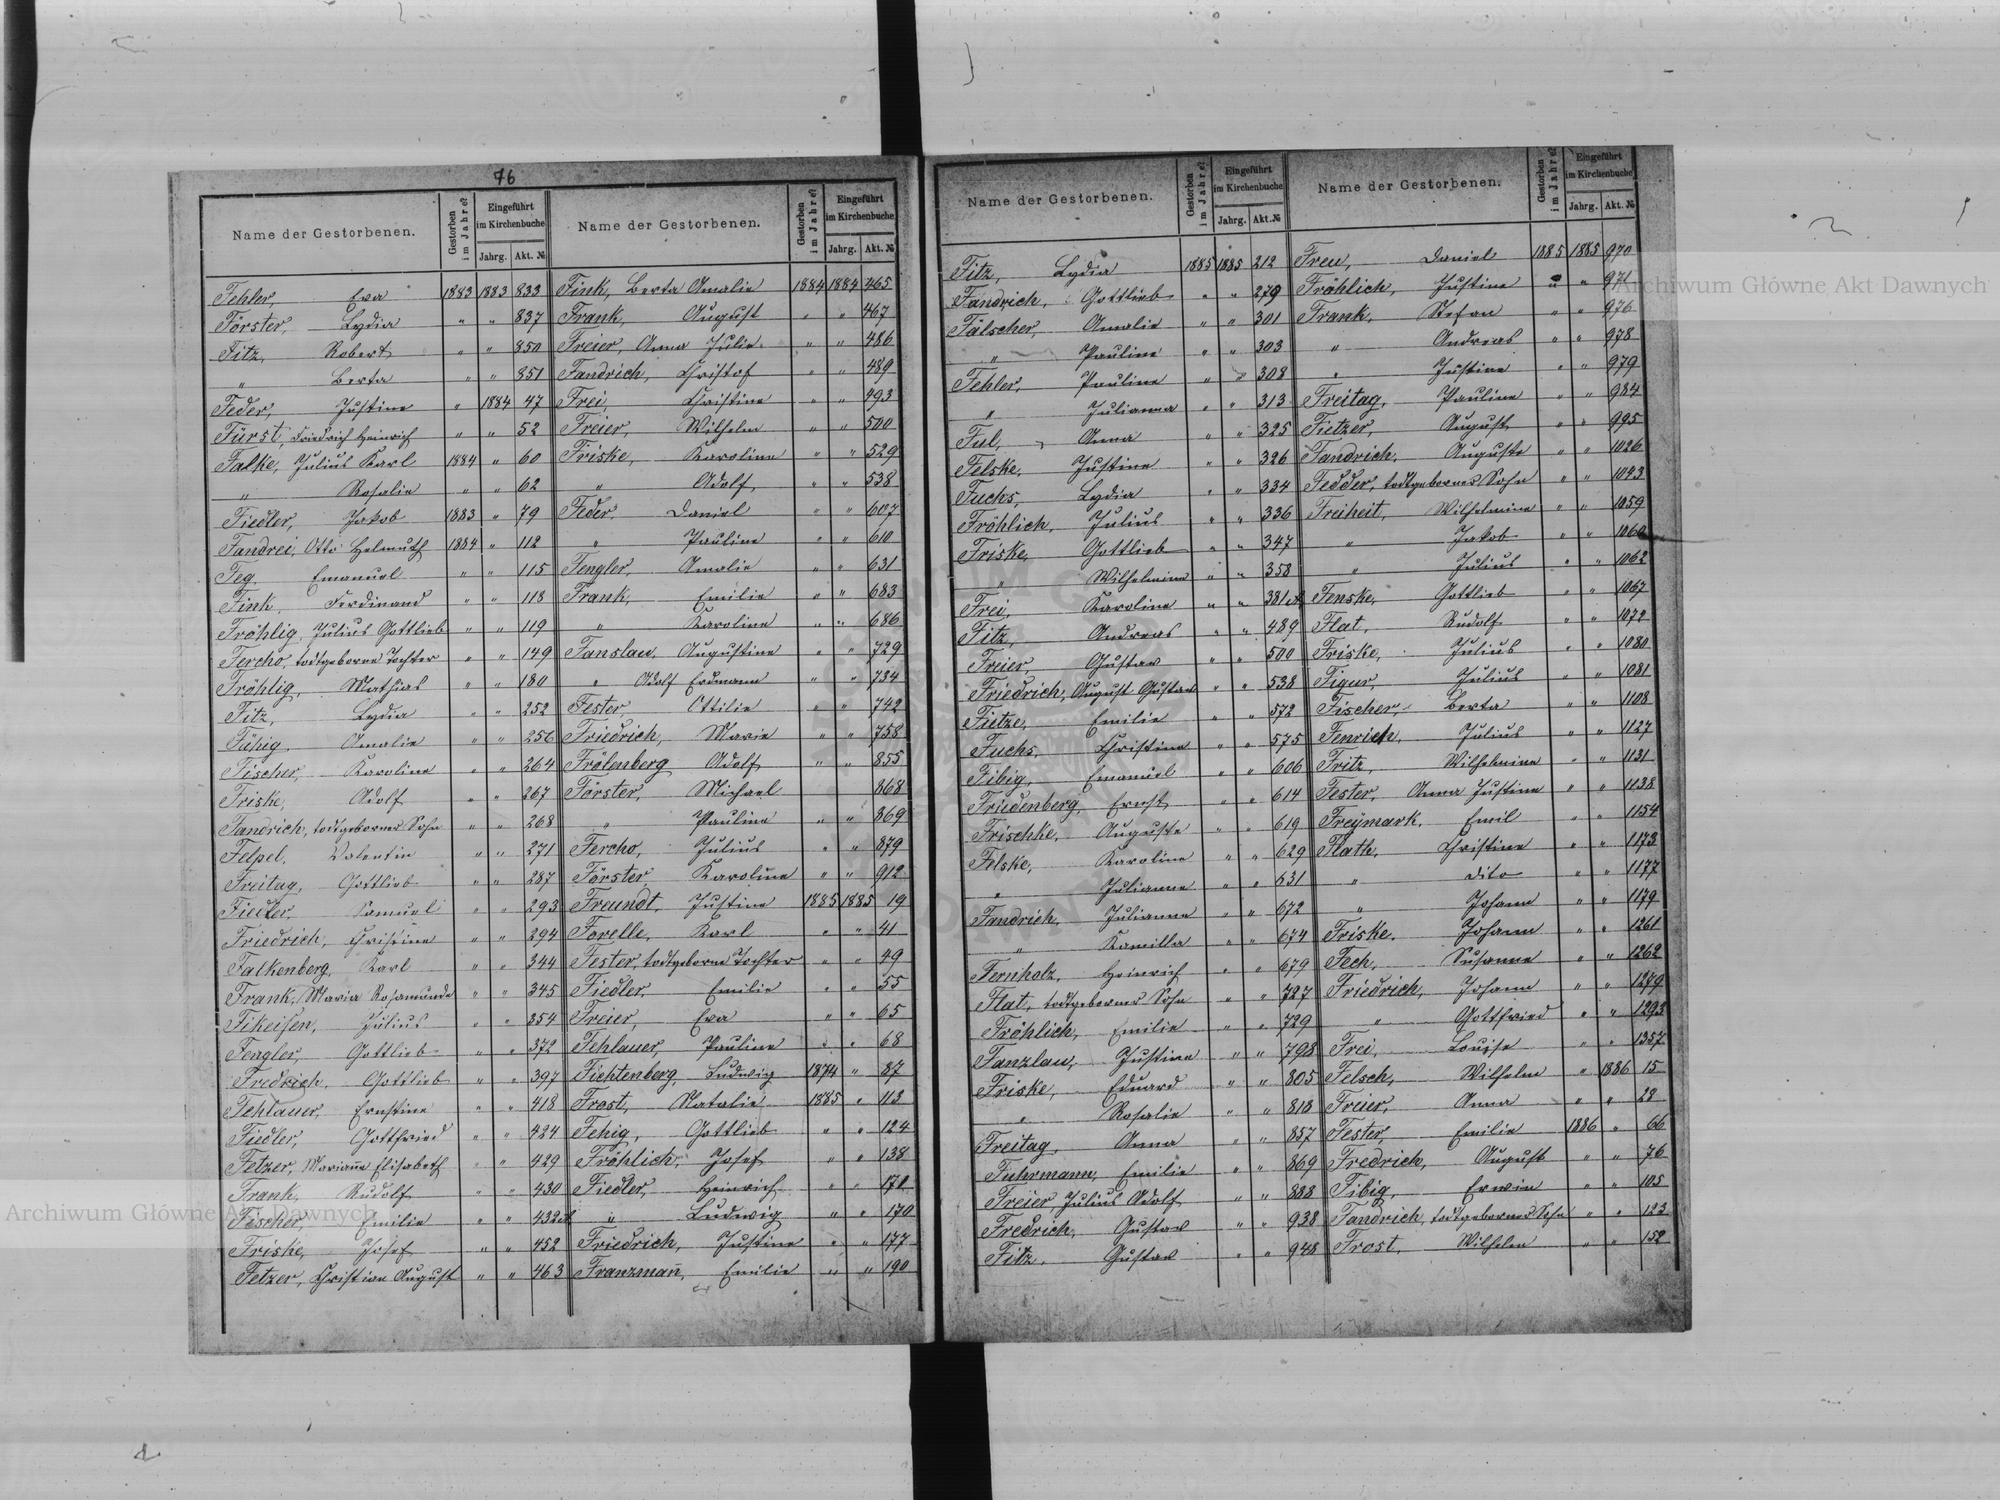 76
Name der Gestorbenen. Gestorben im Jahre? Eingeführt im Kirchenbuche Jahrg. Akt. №
Fehler, Eva 1883 1883 833
Förster, Lydia " " 837
Fitz, Robert " " 850
" Berta " " 851
Feder, Justine " 1884 47
Fürst, Friedrich Heinrich " " 52
Falke, Julius Karl 1884 " 60
" Rosalie " " 62
Fiedler, Jakob 1883 " 79
Fandrei, Otto Helmuth 1884 " 112
Feg, Emanuel " " 115
Fink, Ferdinand " " 118
Fröhlig, Julius Gottlieb " " 119
Fercho, todtgeborne Tochter " " 149
Fröhlig, Mathias " " 180
Fitz, Lydia " " 252
Fähig, Amalie " " 256
Fischer, Karoline " " 264
Friske, Adolf " " 267
Fandrich, todtgeborner Sohn " " 268
Felpel, Valentin " " 271
Freitag, Gottlieb " " 287
Fiedler, Samuel " " 293
Friedrich, Christine " " 294
Falkenberg, Karl " " 344
Frank, Maria Rosamunde " " 345
Fikeisen, Julius " " 354
Fengler, Gottlieb " " 372
Fredrich, Gottlieb " " 397
Fehlauer, Ernstine " " 418
Fiedler, Gottfried " " 424
Fetzer, Mariane Elisabeth " " 429
Frank, Rudolf " " 430
Fischer, Emilie " " 432
Friske, Josef " " 452
Fetzer, Christian August " " 463
Name der Gestorbenen. Gestorben im Jahre? Eingeführt im Kirchenbuche Jahrg. Akt. №
Fink, Berta Amalie 1884 1884 465
Frank, August " " 467
Freier, Anna Julie " " 486
Fandrich, Christof " " 489
Frei, Christine " " 493
Freier, Wilhelm " " 500
Friske, Karoline " " 529
" Adolf " " 538
Feder, Daniel " " 607
" Pauline " " 610
Fengler, Amalie " " 631
Frank, Emilie " " 683
" Karoline " " 686
Fanslau, Augustine " " 729
" Adolf Erdmann " " 734
Fester Ottilie " " 742
Friedrich, Marie " " 758
Frölenberg Adolf " " 855
Förster, Michael 868
" Pauline " " 869
Fercho, Julius " " 879
Förster Karoline " " 912
Freundt, Justine 1885 1885 19
Forelle, Karl " " 41
Fester, todtgeborne Tochter " " 49
Fiedler, Emilie " " 55
Freier, Eva " " 65
Fehlauer, Pauline " " 68
Fichtenberg, Ludwig 1874 " 87
Frost, Natalie 1885 " 113
Fehig, Gottlieb " " 124
Fröhlich, Josef " " 138
Fiedler, Heinrich " "
" Ludwig " " 170
Friedrich, Justine " " 177
Franzmañ, Emilie " " 190
Name der Gestorbenen. Gestorben im Jahre? Eingeführt im Kirchenbuche Jahrg. Akt. №
Fitz, Lydia 1885 1885 212
Fandrich, Gottlieb " " 279
Fälscher, Amalie " " 301
" Pauline " " 303
Fehler, Pauline " " 308
" Julianna " " 313
Ful, Anna " " 325
Felske, Justine " " 326
Fuchs, Lydia " " 334
Fröhlich, Julius " " 336
Friske, Gottlieb " " 347
" Wilhelmine " " 358
Frei, Karoline " " 381
Fitz, Andreas " " 489
Freier, Gustav " " 500
Friedrich, August Gustav " " 538
Fietze, Emilie " " 572
Fuchs, Christine " " 575
Fibig, Emanuel " " 606
Friedenberg, Ernst " " 614
Frischke, Auguste " " 619
Felske, Karoline " " 629
" Julianne " " 631
Fandrich, Julianne " " 672
" Kamilla " " 674
Fernholz, Heinrich " " 679
Flat, todtgeborner Sohn " " 727
Fröhlich, Emilie " " 729
Fanzlau, Justine " " 798
Friske, Eduard " " 805
" Rosalie " " 813
Freitag, Anna " " 857
Fuhrmann, Emilie " " 869
Freier Julius Adolf " " 888
Fredrich, Gustav " " 938
Fitz, Gustav " " 948
Name der Gestorbenen. Gestorben im Jahre? Eingeführt im Kirchenbuche Jahrg. Akt. №
Freu, Daniel 1885 1885 970
Fröhlich, Justine " " 971
Frank, Stefan " " 976
" Andreas " " 978
" Justine " " 979
Freitag, Pauline " " 984
Fietzer, August " " 995
Fandrich, Auguste " " 1026
Fedder, todtgeborner Sohn " " 1043
Freiheit, Wilhelmine " " 1059
" Jakob " " 1060
" Julius " " 1062
Fenske, Gottlieb " " 1067
Flat, Rudolf " " 1072
Friske, Julius " " 1080
Figur, Julius " " 1081
Fischer, Berta " " 1108
Fenrich, Julius " " 1127
Fritz, Wilhelmine " " 1131
Fester, Anna Justine " " 1138
Freymark, Emil " " 1154
Flath, Christine " " 1173
" dito " " 1177
" Johann " " 1179
Friske, Johann " " 1261
Fech, Susanne " " 1262
Friedrich, Johann " " 1279
" Gottfried " " 1293
Frei, Louise " " 1357
Felsch, Wilhelm " 1886 15
Freier, Anna " " 29
Fester, Emilie 1886 " 66
Fredrich, August " " 76
Fibig, Erwin " " 105
Fandrich, todtgeborner Sohn " " 123
Frost, Wilhelm " " 152
Archiwum Główne Akt Dawnych
Archiwum Główne Akt Dawnych